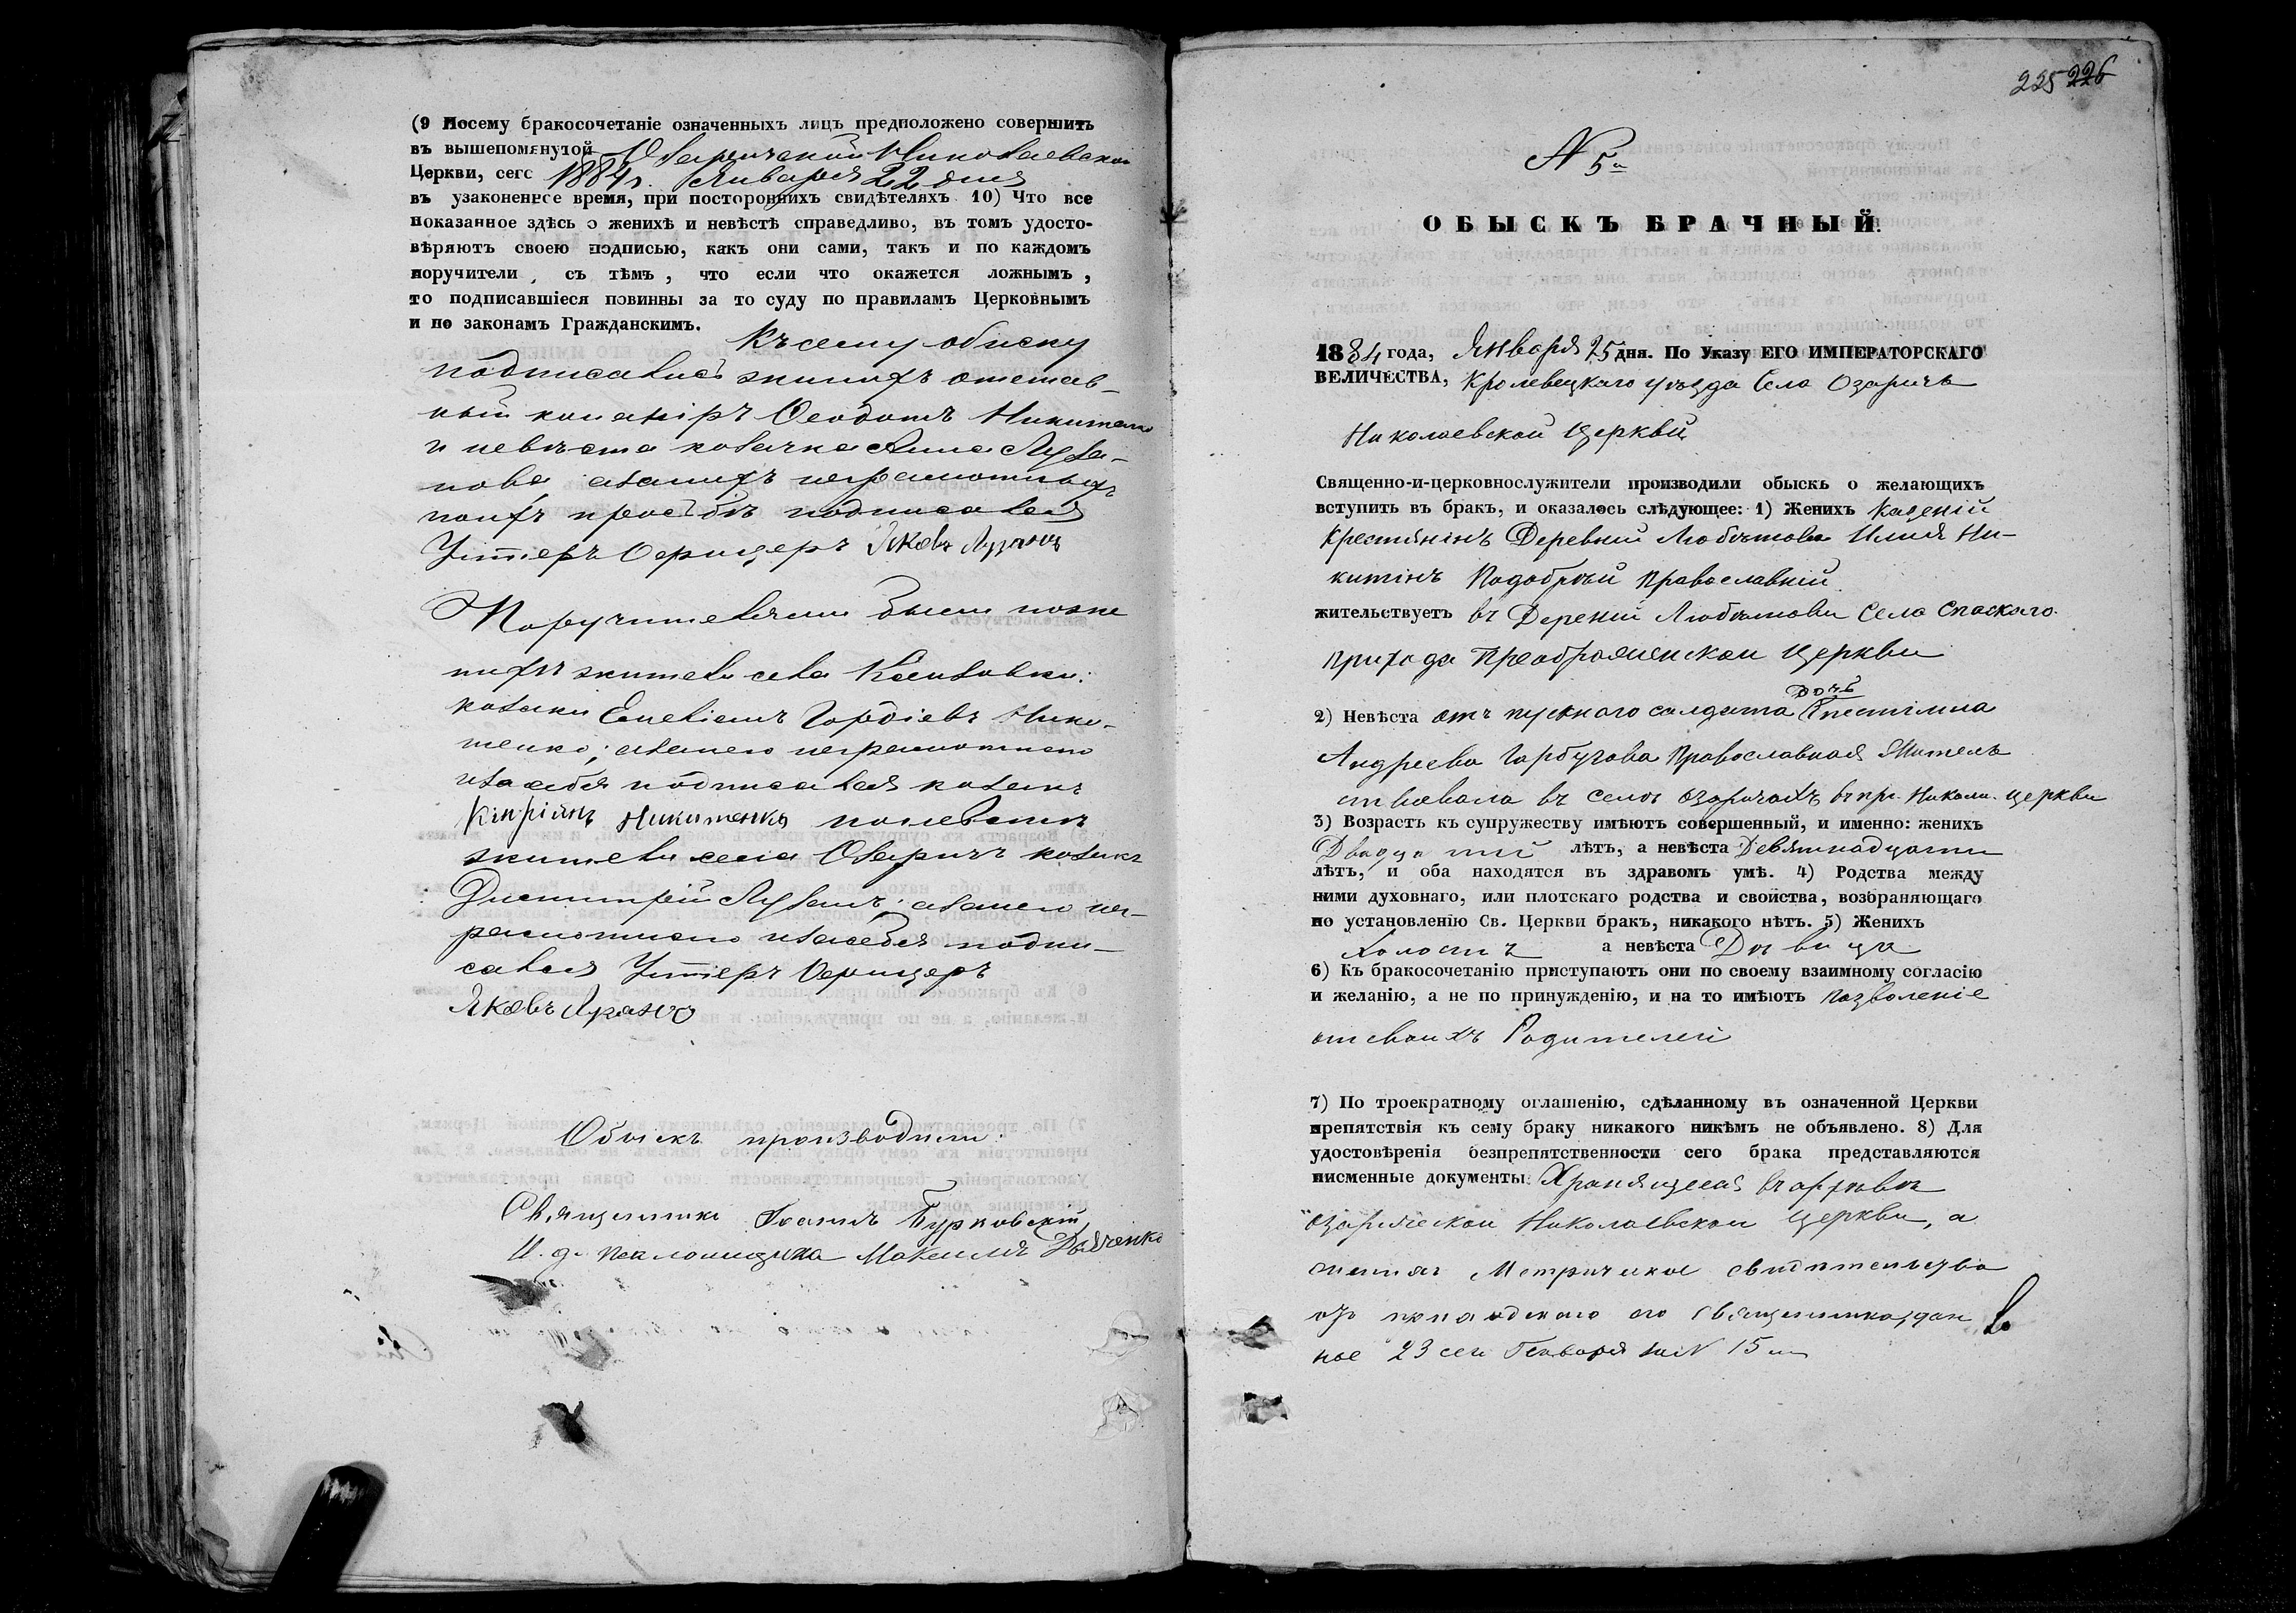 (9 Посему бракосочетаніе означенныхъ лицъ предположено совершить
въ вышепомянутой Озаричской Николаевской
Церкви, сего 1884 г. Января 22 дня
въ узаконенное время, при постороннихъ свидѣтеляхъ 10) Что все
показанное здѣсь о женихѣ и невѣстѣ справедливо, въ томъ удосто-
вѣряютъ своею подписью, какъ они сами, такъ и по каждомъ
поручители, съ тѣмъ, что если что окажется ложнымъ,
то подписавшіеся повинны за то суду по правиламъ Церковнымъ
и по законамъ Гражданскимъ. Къ сему обыску
подписались женихъ отстав-
ный Феодотъ Никитенко
и невѣста козачка Анна Луза-
нова, а за нихъ неграмотныхъ
по ихъ прозьбѣ подписался
Унтеръ Офицеръ Яковъ Лузанъ
Поручителями были по же
нихѣ жители села
козаки Гордіевъ Ники-
тенко; а за него неграмотного
и за себя подписался козакъ
Кипріянъ Никитенко по невѣстѣ
жители села Озаричъ козакъ
Дмитрій Лузанъ; а за него нег-
рамотного и за себя подпи-
сался Унтеръ Офицеръ
Яковъ Лузанъ
Обыскъ производили:
Священникъ Іоаннъ Бурковскій
И. д. псаломщика Максимъ Дьяченко
225 226
N 5й
ОБЫСКЪ БРАЧНЫЙ.
1884 года, Января 25 дня. По Указу ЕГО ИМПЕРАТОРСКАГО
ВЕЛИЧЕСТВА, Кролевецкаго уѣзда Села Озаричъ
Николаевской Церкви
Священно-и-церковнослужители производили обыскъ о желающихъ
вступить въ бракъ, и оказалось слѣдующее: 1) Женихъ Казеній
Крестянінъ Деревни Любитова Илія Ни-
китінъ Подобрій Православній
жительствуетъ въ Деревни Любитови Села Спаскаго
прихода Преображенской Церкви
дочь
2) Невѣста отъ пускного солдата
Андреева Горбузова Православная Житель
ствовала въ Селѣ Озаричахъ въ пр. Никола. церкви
3) Возрастъ къ супружеству имѣютъ совершенный, и именно: женихъ
лѣтъ, а невѣста Девятнадцати
лѣтъ, и оба находятся въ здравомъ умѣ. 4) Родства между
ними духовнаго, или плотскаго родства и свойства, возбраняющаго
по установленію Св. Церкви бракъ, никакого нѣтъ. 5) Женихъ
Холостъ а невѣста Дѣвица
6) Къ бракосочетанію приступаютъ они по своему взаимному согласію
и желанію, а не по принужденію, и на то имѣютъ позволеніе
от своихъ Родителей
7) По троекратному оглашенію, сдѣланному въ означенной Церкви
препятствія къ сему браку никакого никѣмъ не объявлено. 8) Для
удостовѣренія безпрепятственности сего брака представляются
писменные документы: Хранящееся въ архивѣ
Озаричской Николаевской церкви, а
женихъ Метрическое свидѣтельство
отъ приходского его священника, дан
ное 23 сего Генваря за N 15 м